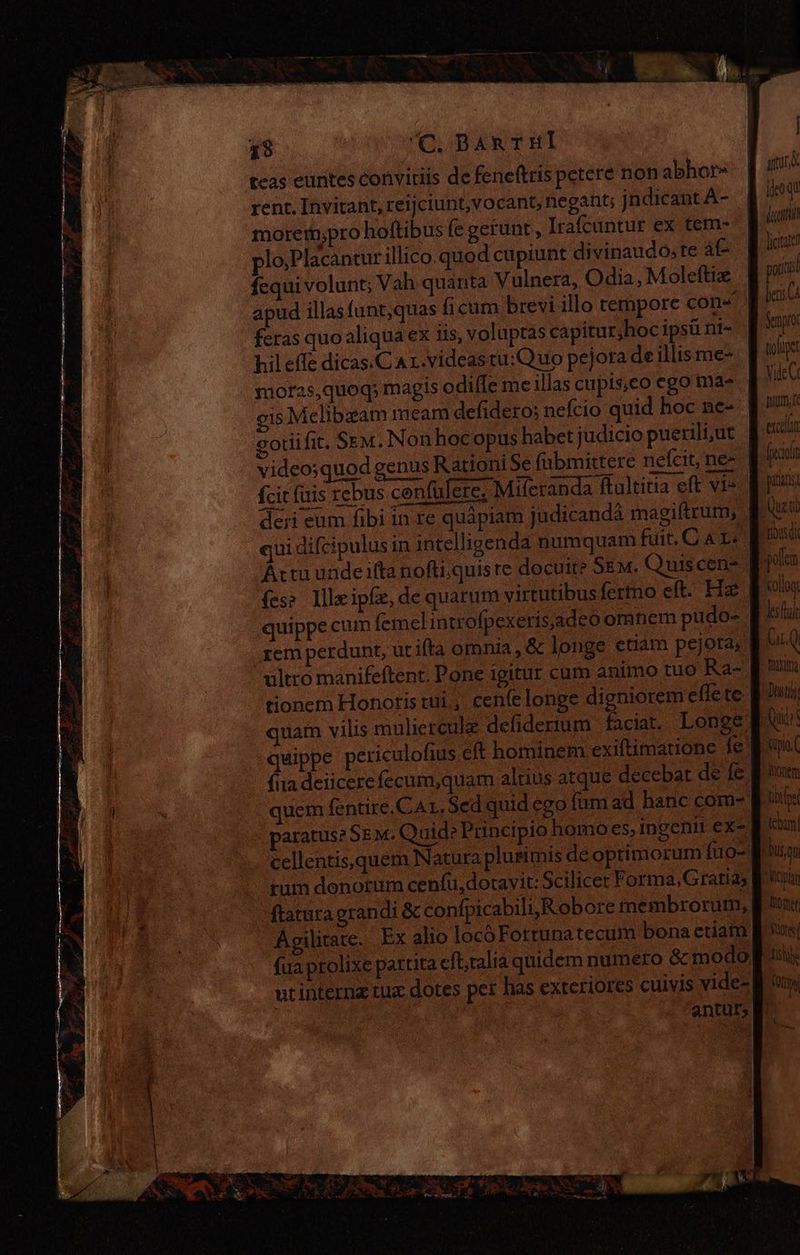 18 C. BARTHI
teas euntes convitiis de feneſtris petere non abhor-
rent. Invitant, reijciunt, vocant, negant; jndicant A-
morem, pro hoſtibus ſe gerunt, Iraſcuntur ex tem-
plo, Placantur illico. quod cupiunt divinaudo, te aſ-
ſequi volunt; Vah quanta Vulnera, Odia, Moleſtiæ
apud illas ſunt, quas ſi cum brevi illo tempore con-
feras quo aliqua ex iis, voluptas capitur, hoc ipsū ni-
hil eſſe dicas. CAL. videas tu: Quo pejora de illis me-
moras, quoq; magis odiſſe me illas cupis; eo ego ma-
gis Melibæam meam deſidero; neſcio quid hoc ne-
gotii ſit. SEM. Non hoc opus habet judicio puerili, ut
video; quod genus Rationi Se ſubmittere neſcit, ne-
ſcit ſuis rebus conſulere, Miſeranda ſtultitia eſt vi-
deri eum ſibi in re quàpiam judicandâ magiſtrum,
qui diſcipulus in intelligenda numquam fuit. CAL.
At tu unde iſta noſti, quis te docuit? SEM. Quis cen-
ſes? Illæ ipſæ, de quarum virtutibus ſermo eſt. Hæ
quippe cum ſemel introſpexeris, adeo omnem pudo-
rem perdunt, ut iſta omnia, & longe etiam pejora,
ultro manifeſtent. Pone igitur cum animo tuo Ra-
tionem Honoris tui, cenſe longe digniorem eſſe te
quam vilis mulierculæ deſiderium faciat. Longe
quippe periculoſius eſt hominem exiſtimatione ſe
ſua deiicere ſecum, quam altius atque decebat de ſe
quem ſentire. CAL. Sed quid ego ſum ad hanc com-
paratus? SEM. Quid? Principio homo es, ingenii ex-
cellentis, quem Natura plurimis de optimorum ſuo-
rum donorum cenſu, dotavit: Scilicet Forma, Gratia,
ſtatura grandi & conſpicabili, Robore membrorum,
Agilitate. Ex alio locò Fortuna tecum bona etiam
ſua prolixe partita eſt, talia quidem numero & modo
ut internæ tuæ dotes per has exteriores cuivis vide-
antur,